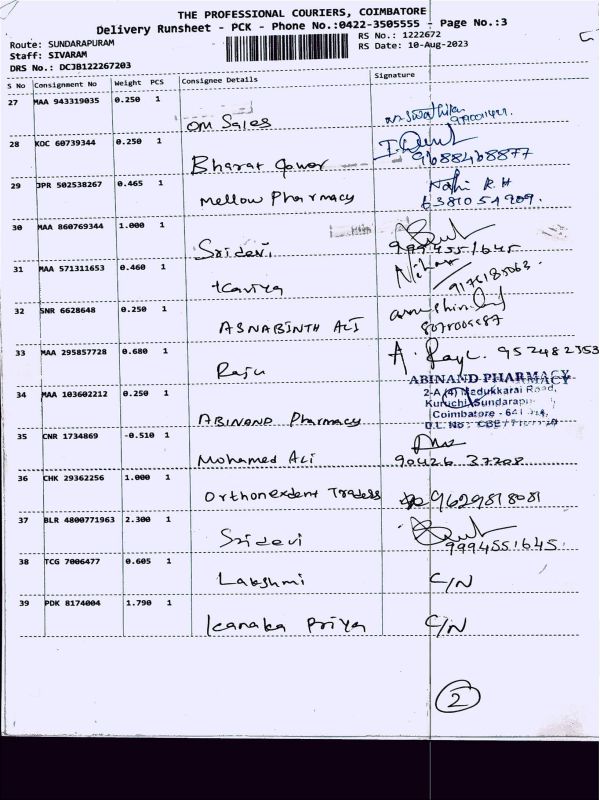 THE PROFESSIONAL COURIERS, COIMBATORE
Delivery Runsheet - PCK - Phone No.:0422-3505555 - Page No.:3
Route: SUNDARAPURAM RS No.: 1222672
Staff: SIVARAM RS Date: 10-Aug-2023
DRS No.: DCJB122267203
S No Consignment No Weight PCS Consignee Details Signature
27 MAA 943319035 0.250 1
om Sales
28 KOC 60739344 0.250 1
Bharat Gowar 9688468877
29 JPR 502538267 0.465 1
Mellow Pharmacy R.H
6381054909.
30 MAA 860769344 1.000 1
Sridevi 9994551645
31 MAA 571311653 0.460 1
Kaviya 9176185063.
32 SNR 6628648 0.250 1
ASNABINTH ALI
33 MAA 295857728 0.680 1
Raju A. 952482353
34 MAA 103602212 0.250 1
ABINAND Pharmacy
ABINAND PHARMACY
2-A (4) Medukkarai Road,
Kuruchi, Sundarapu
Coimbatore - 641
D.L. No :
35 CNR 1734869 -0.510 1
Mohamed Ali 90426 37208
36 CHK 29362256 1.000 1
Orthonextent Traders 9629818081
37 BLR 4800771963 2.300 1
Sridevi 9994551645.
38 TCG 7006477 0.605 1
Lakshmi C/N
39 PDK 8174004 1.790 1
Kanaka Priya C/N
2